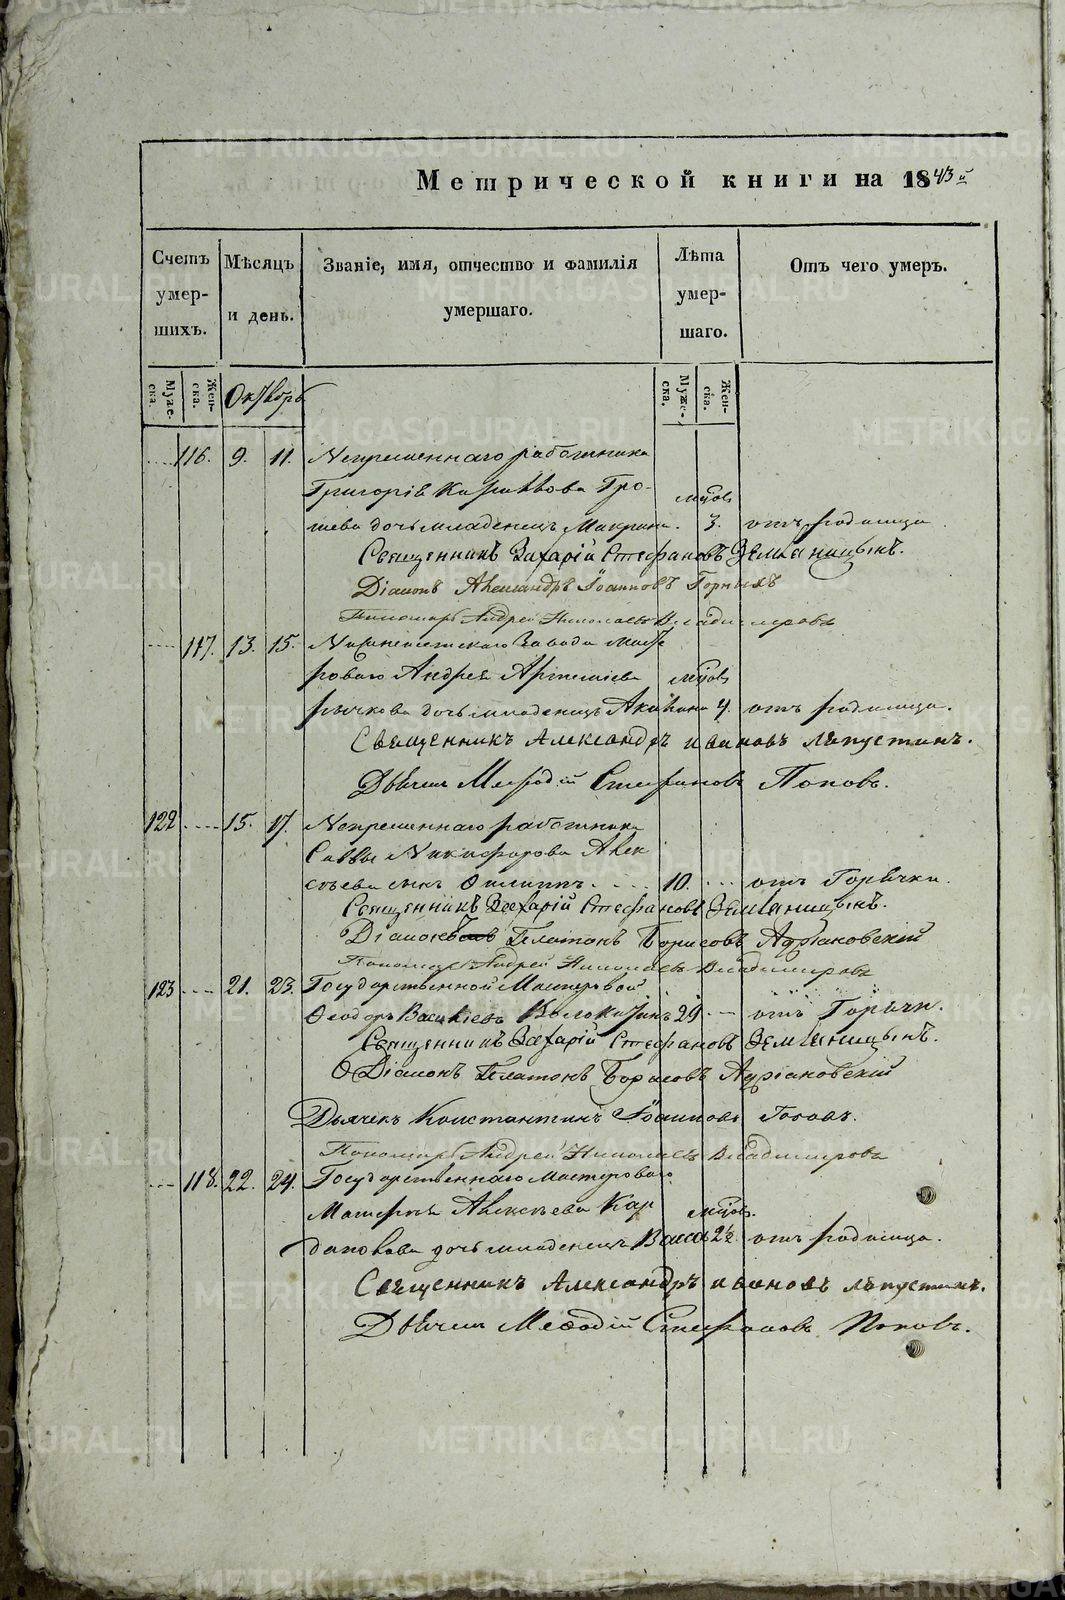 Метрической книги на 1843й
Счетъ умер- шихъ.
Мѣсяцъ и день.
Званіе, имя, отчество и фамилія умершаго.
Лѣта умер- шаго.
Отъ чего умеръ.
Муже- ска.
Жен- ска.
Октябрь
Муже- ска.
Жен- ска.
116. 9. 11. Непременнаго работника
Григорія Гро-
шева дочь младенецъ Макрина. 3. отъ родимца
Священникъ Захарій Стефановъ Земляницынъ.
Діаконъ Александръ Іоанновъ Горныхъ
Пономарь Андрей Николаевъ Владимировъ
117. 13. 15. Завода масте
роваго Андрея Артемьева мѣсяцовъ
рычкова дочь младенецъ Акилина 4. отъ родимца.
Священникъ Александръ ивановъ лѣпустинъ.
Дьячекъ Мефодій Стефановъ Поповъ.
122 15. 17. Непременнаго работника
Саввы Никифорова Алек
сѣева сынъ Филиппъ. 10. отъ Горячки.
Священникъ Захарій Стефановъ Земляницынъ.
Діаконъ Платонъ Борисовъ Адріановскій
Пономарь Андрей Николаевъ Владимировъ
123 21. 23. Государственной Мастеровой
Феодоръ Васильевъ Волокитинъ 29 отъ Горячк.
Священникъ Захарій Стефановъ Земляницынъ.
Діаконъ Платонъ Борисовъ Адріановскій
Дьячекъ Константинъ Іоанновъ
Пономарь Андрей Николаевъ Владимировъ
118. 22. 24. Государственнаго мастероваго
Алексѣева Кар
дапова дочь младенецъ Васса 2½ отъ родимца.
Священникъ Александръ ивановъ лѣпустинъ.
Дьячекъ Мефодій Стефановъ Поповъ.
METRIKI.GASO-URAL.RU